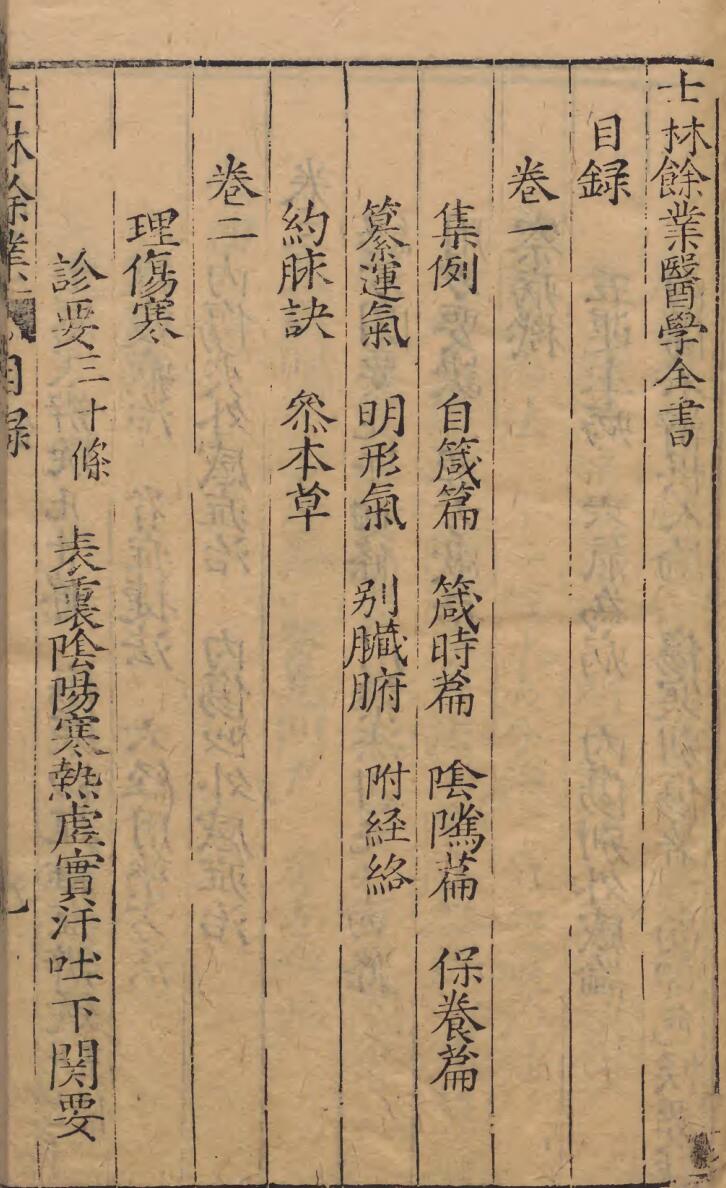 士林餘業醫學全書
目録
卷一
集例 自箴篇 箴時篇 陰隲篇 保養篇
纂運氣 明形氣 别臟腑 附経絡
約脉訣 叅本草
卷二
理傷寒
診要三十條 表裏陰陽寒熱虛實汗吐下関要
士林餘業 目録